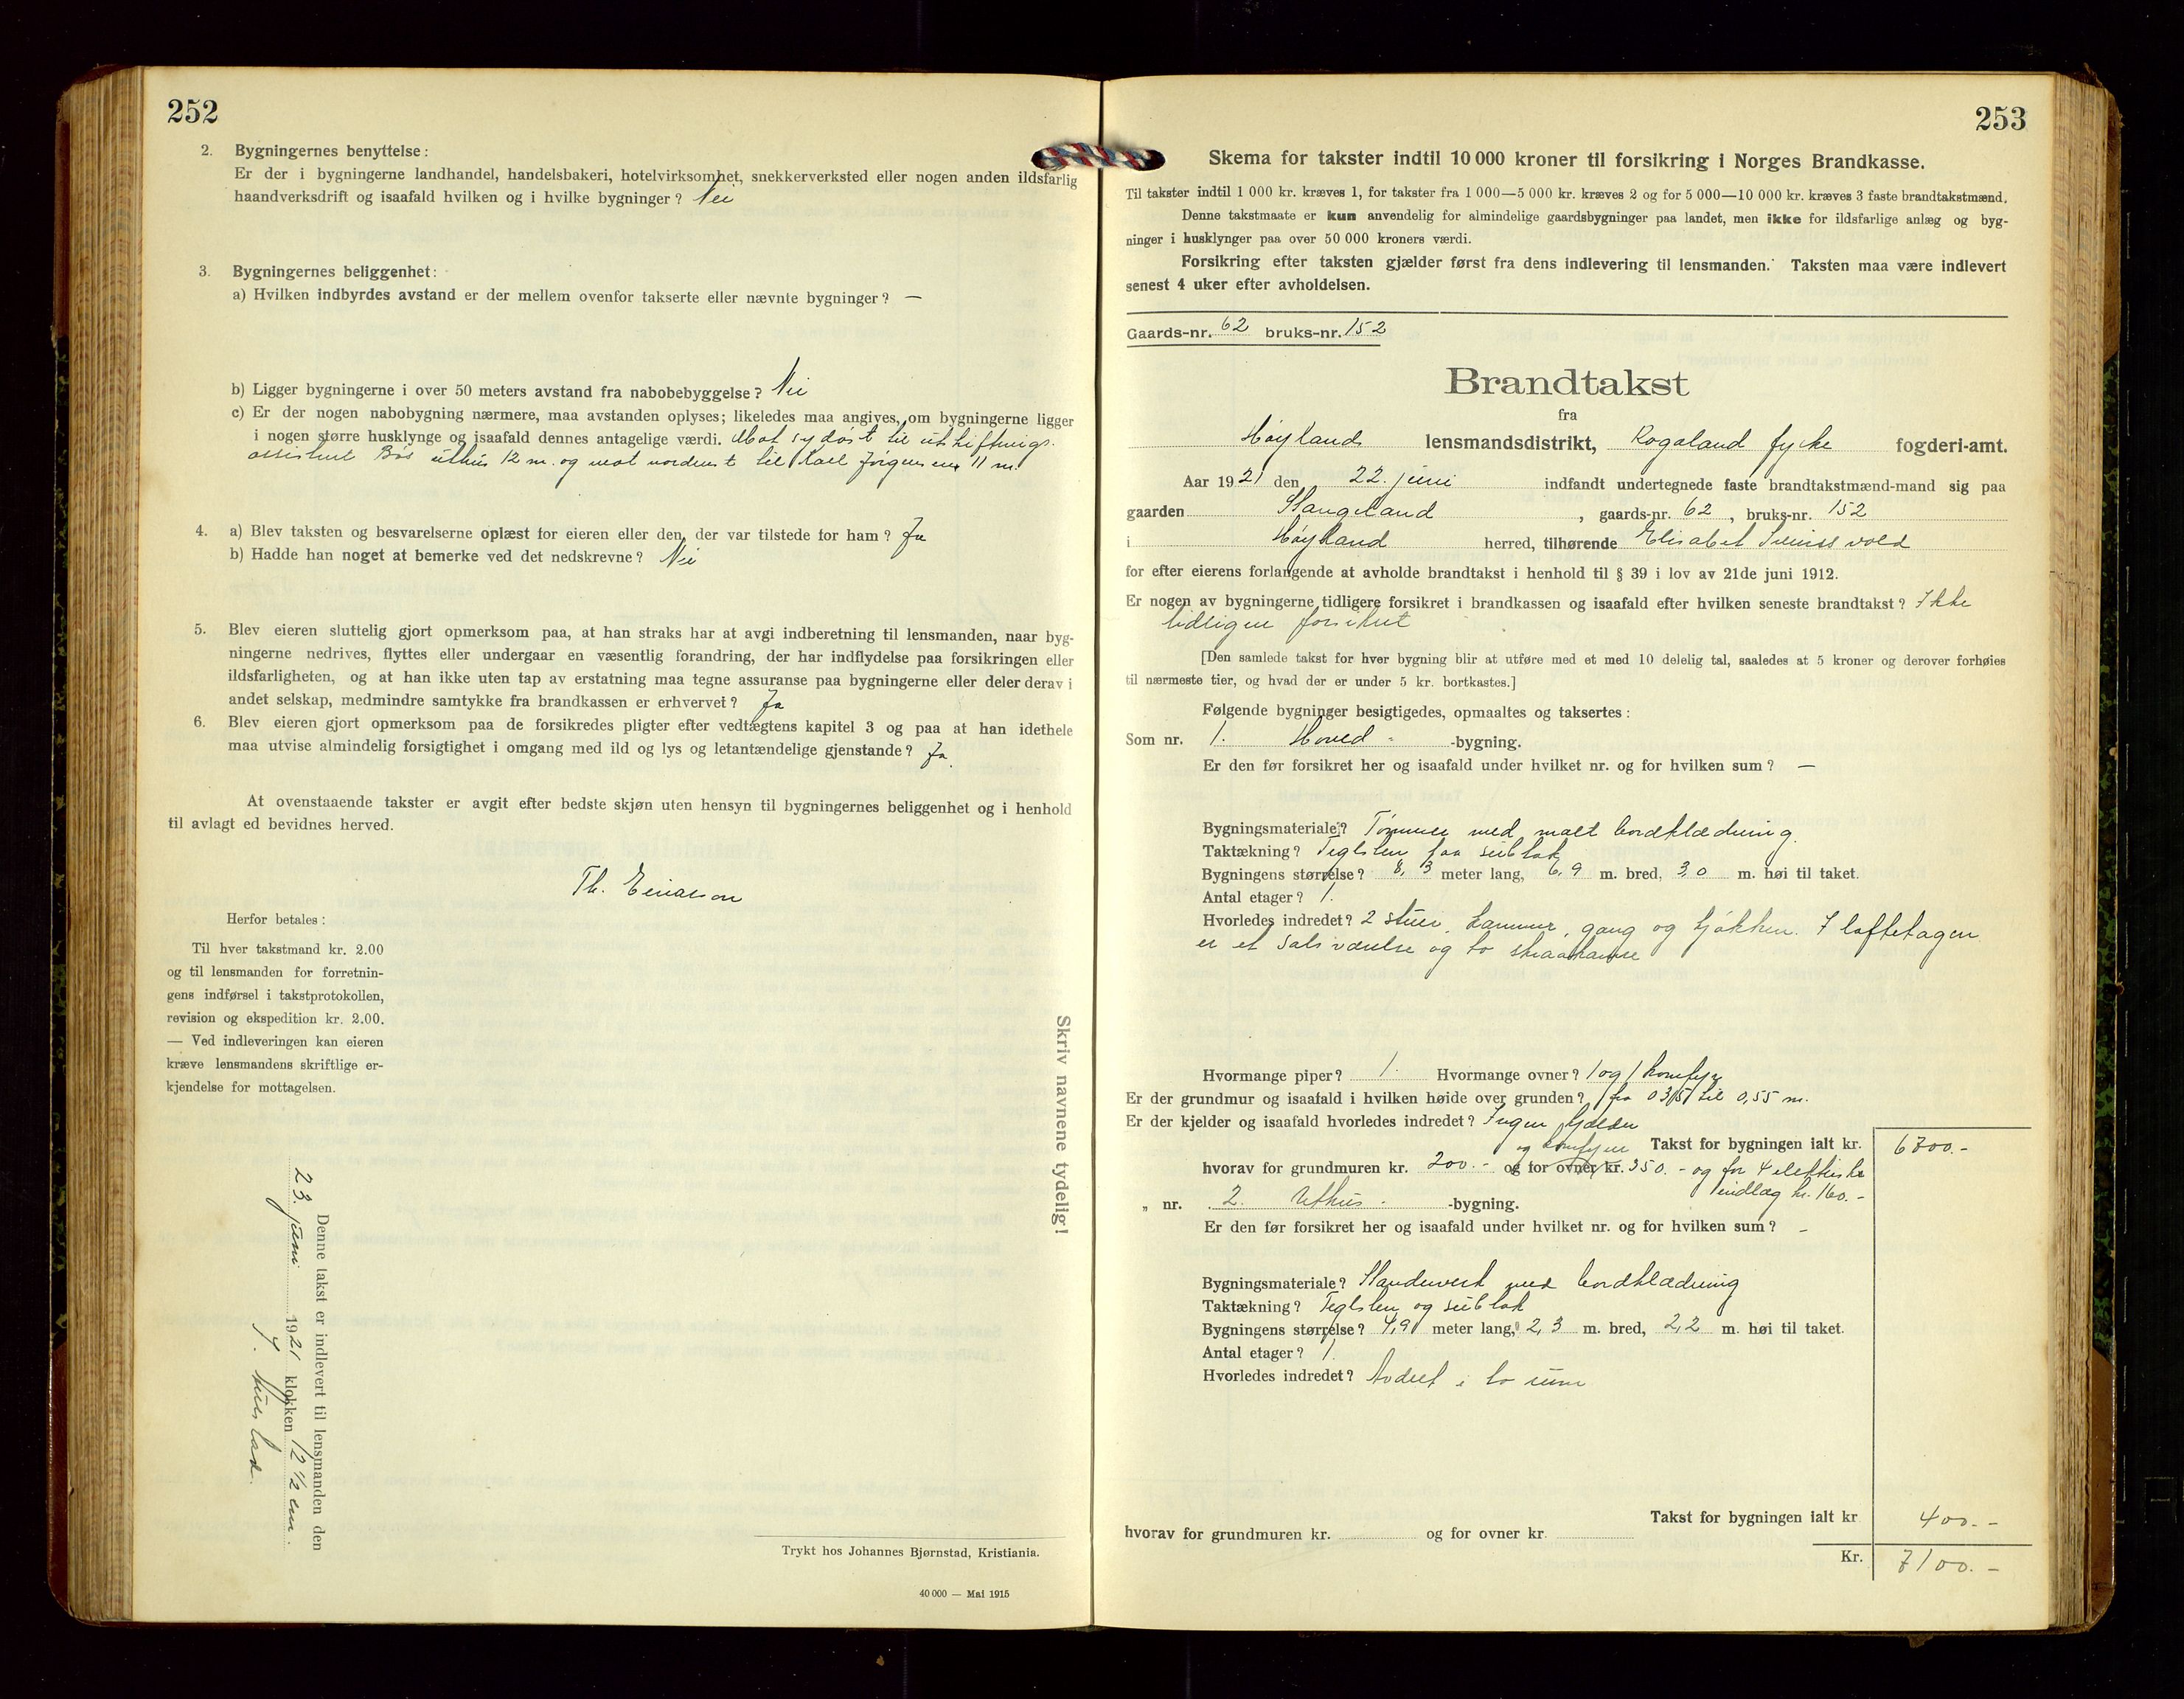 252
2. Bygningernes benyttelse:
Er der i bygningerne landhandel, handelsbakeri, hotelvirksomhet, snekkerverksted eller nogen anden ildsfarlig
haandverksdrift og isaafald hvilken og i hvilke bygninger? Nei
3. Bygningernes beliggenhet:
a) Hvilken indbyrdes avstand er der mellem ovenfor takserte eller nævnte bygninger? —
b) Ligger bygningerne i over 50 meters avstand fra nabobebyggelse? Nei
c) Er der nogen nabobygning nærmere, maa avstanden oplyses; likeledes maa angives, om bygningerne ligger
i nogen større husklynge og isaafald dennes antagelige værdi. Mot sydøst til utskiftnigs-
assistent Bøs uthus 12 m. og mot nordvest til Karl Jørgensens 11 m.
4. a) Blev taksten og besvarelserne oplæst for eieren eller den, der var tilstede for ham? Ja
b) Hadde han noget at bemerke ved det nedskrevne? Nei
5. Blev eieren sluttelig gjort opmerksom paa, at han straks har at avgi indberetning til lensmanden, naar byg-
ningerne nedrives, flyttes eller undergaar en væsentlig forandring, der har indflydelse paa forsikringen eller
ildsfarligheten, og at han ikke uten tap av erstatning maa tegne assuranse paa bygningerne eller deler derav i
andet selskap, medmindre samtykke fra brandkassen er erhvervet? Ja
6. Blev eieren gjort opmerksom paa de forsikredes pligter efter vedtægtens kapitel 3 og paa at han idethele
maa utvise almindelig forsigtighet i omgang med ild og lys og letantændelige gjenstande? Ja.
At ovenstaaende takster er avgit efter bedste skjøn uten hensyn til bygningernes beliggenhet og i henhold
til avlagt ed bevidnes herved.
Th.
Herfor betales:
Til hver takstmand kr. 2.00
og til lensmanden for forretnin-
gens indførsel i takstprotokollen,
revision og ekspedition kr. 2.00.
— Ved indleveringen kan eieren
kræve lensmandens skriftlige er-
kjendelse for mottagelsen.
Denne takst er indlevert til lensmanden den
23. juni 1921 klokken 12 ½ em.
Skriv navnene tydelig!
Trykt hos Johannes Bjørnstad, Kristiania.
40 000 — Mai 1915
253
Skema for takster indtil 10 000 kroner til forsikring i Norges Brandkasse.
Til takster indtil 1 000 kr. kræves 1, for takster fra 1 000—5 000 kr. kræves 2 og for 5 000—10 000 kr. kræves 3 faste brandtakstmænd.
Denne takstmaate er kun anvendelig for almindelige gaardsbygninger paa landet, men ikke for ildsfarlige anlæg og byg-
ninger i husklynger paa over 50 000 kroners værdi.
Forsikring efter taksten gjælder først fra dens indlevering til lensmanden. Taksten maa være indlevert
senest 4 uker efter avholdelsen.
Gaards-nr. 62 bruks-nr. 152
Brandtakst
fra
Høylands lensmandsdistrikt, Rogaland fylke fogderi-amt.
Aar 1921 den 22. juni indfandt undertegnede faste brandtakstmænd-mand sig paa
gaarden Stangeland, gaards-nr. 62, bruks-nr. 152
i Høyland herred, tilhørende Elisabet
for efter eierens forlangende at avholde brandtakst i henhold til § 39 i lov av 21de juni 1912.
Er nogen av bygningerne tidligere forsikret i brandkassen og isaafald efter hvilken seneste brandtakst? Ikke
tidligere forsikret
[Den samlede takst for hver bygning blir at utføre med et med 10 delelig tal, saaledes at 5 kroner og derover forhøies
til nærmeste tier, og hvad der er under 5 kr. bortkastes.]
Følgende bygninger besigtigedes, opmaaltes og taksertes:
Som nr. 1. Hoved- -bygning.
Er den før forsikret her og isaafald under hvilket nr. og for hvilken sum? —
Bygningsmateriale? Tømmer med malt bordklædning.
Taktækning? Teglsten paa sutak
Bygningens størrelse? 8,3 meter lang, 6,9 m. bred, 3,0 m. høi til taket.
Antal etager? 1.
Hvorledes indredet? 2 stuer, kammer, gang og kjøkken. I loftetagen
er et salsværelse og to skraakamre
Hvormange piper? 1. Hvormange ovner? 1 og 1 komfyr
Er der grundmur og isaafald i hvilken høide over grunden? fra 0,35 til 0,55 m.
Er der kjelder og isaafald hvorledes indredet? Ingen kjelder
og komfyren Takst for bygningen ialt kr. 6700.-
hvorav for grundmuren kr. 200.- og for ovner kr. 350.- og for 4 elektriske
indlæg kr. 160.-
„ nr. 2. Uthus- -bygning.
Er den før forsikret her og isaafald under hvilket nr. og for hvilken sum? -
Bygningsmateriale? Standverk med bordklædning
Taktækning? Teglsten og sutak
Bygningens størrelse? 4,9 meter lang, 2,3 m. bred, 2,2 m. høi til taket.
Antal etager? 1.
Hvorledes indredet? Avdelt i to rum
Takst for bygningen ialt kr. 400.-
hvorav for grundmuren kr. og for ovner kr.
Kr. 7100.-